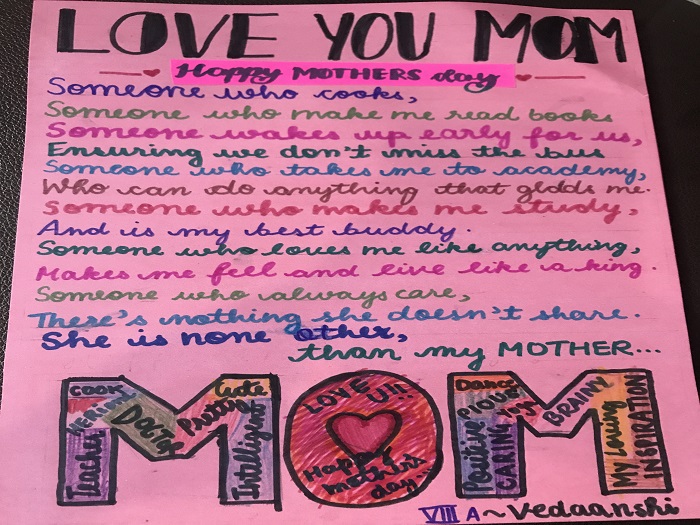 LOVE YOU MOM
Happy MOTHERS day
Someone who cooks,
Someone who make me read books
Someone wakes up early for us,
Ensuring we don't miss the bus
Someone who takes me to academy,
Who can do anything that gladds me.
Someone who makes me study,
And is my best buddy.
Someone who loves me like anything,
Makes me feel and live like a king.
Someone who always care,
There's nothing she doesn't share.
She is none other,
than my MOTHER...
COOK
Doctor
Pretty
Cute
Teacher
Intelligent
LOVE U!!
Happy
mother's
day...
Dance
Positive
CARING
BRAINY
My Loving
INSPIRATION
VIII A ~ Vedaanshi